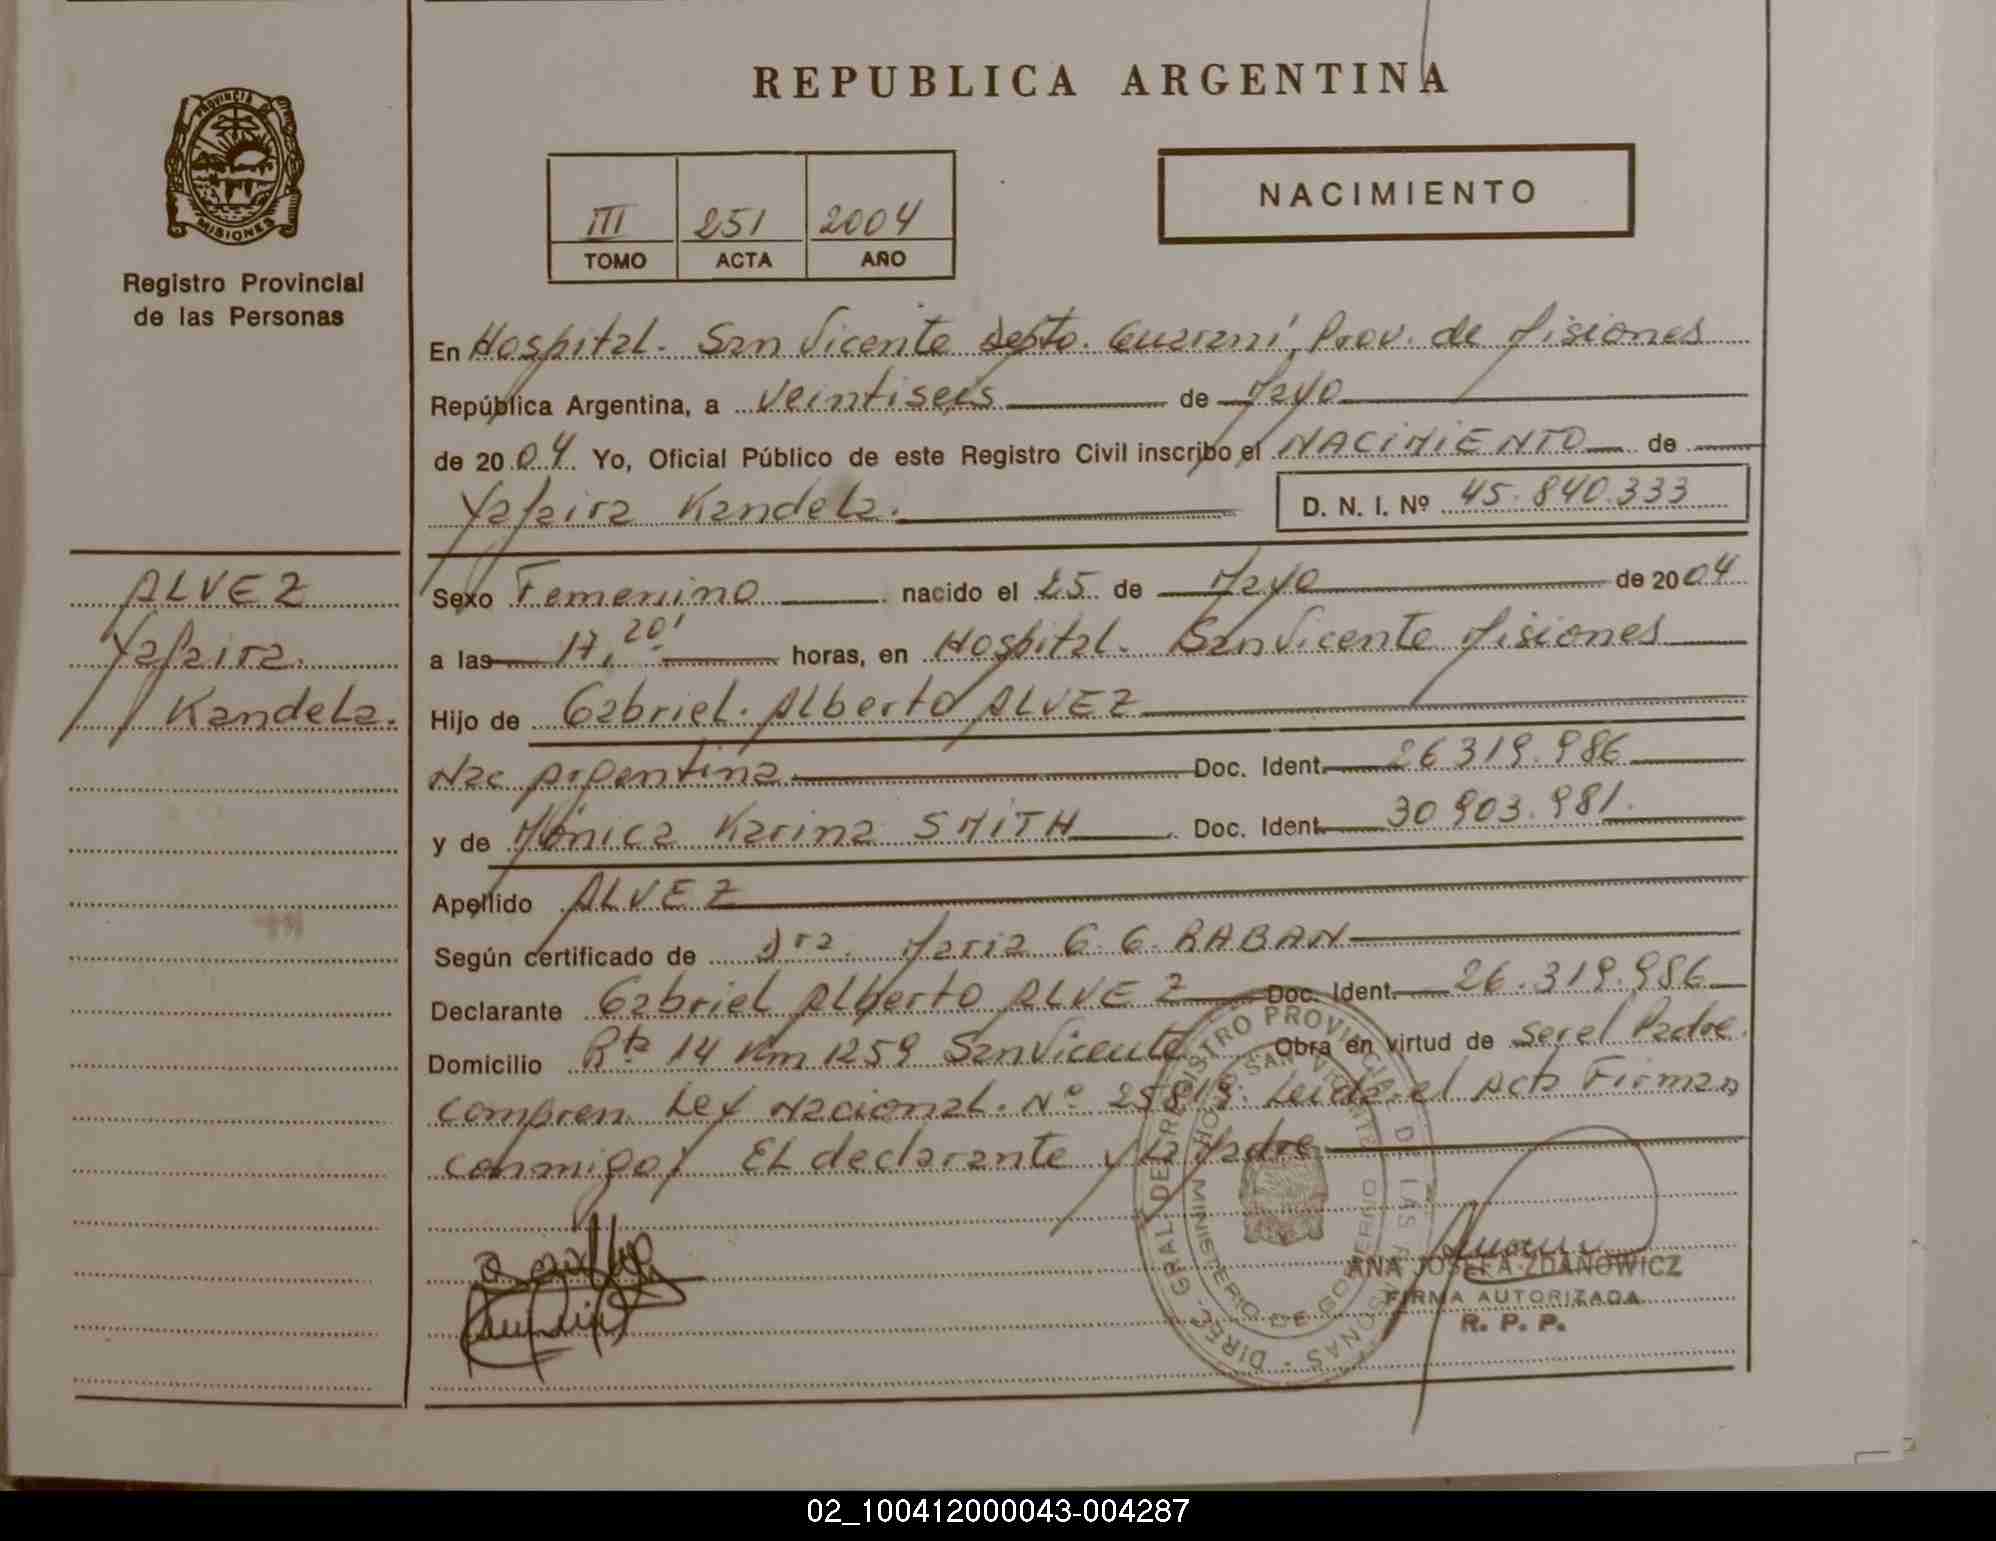 REPUBLICA ARGENTINA
PROVINCIA DE MISIONES
Registro Provincial
de las Personas
III 251 2004
TOMO ACTA AÑO
NACIMIENTO
En Hospital. San Vicente Depto. Guaraní, Prov. de Misiones
República Argentina, a veintiseis de Mayo
de 2004. Yo, Oficial Público de este Registro Civil inscribo el NACIMIENTO de
Yajaira Kandela. D. N. I. Nº 45.840.333
ALVEZ
Yajaira
Kandela.
Sexo Femenino nacido el 25 de Mayo de 2004
a las 17,20' horas, en Hospital. San Vicente Misiones
Hijo de Gabriel. Alberto ALVEZ
Nac Argentina Doc. Ident. 26319.986
y de Mónica Karina SMITH Doc. Ident. 30903.981.
Apellido ALVEZ
Según certificado de Dra. Maria G. G. RABAN
Declarante Gabriel Alberto ALVEZ Doc. Ident. 26.319.986
Domicilio Rta 14 Km 1259 San Vicente Obra en virtud de ser el Padre.
Compren. Ley Nacional. Nº 25819. Leida el Acta Firman
conmigo; El declarante y la Madre
DIREC. GRAL. DE REGISTRO PROVINCIAL DE LAS PERSONAS
MINISTERIO DE GOBIERNO
HOSP. SAN VICENTE
ANA JOSEFA ZDANOWICZ
FIRMA AUTORIZADA
R. P. P.
02_100412000043-004287